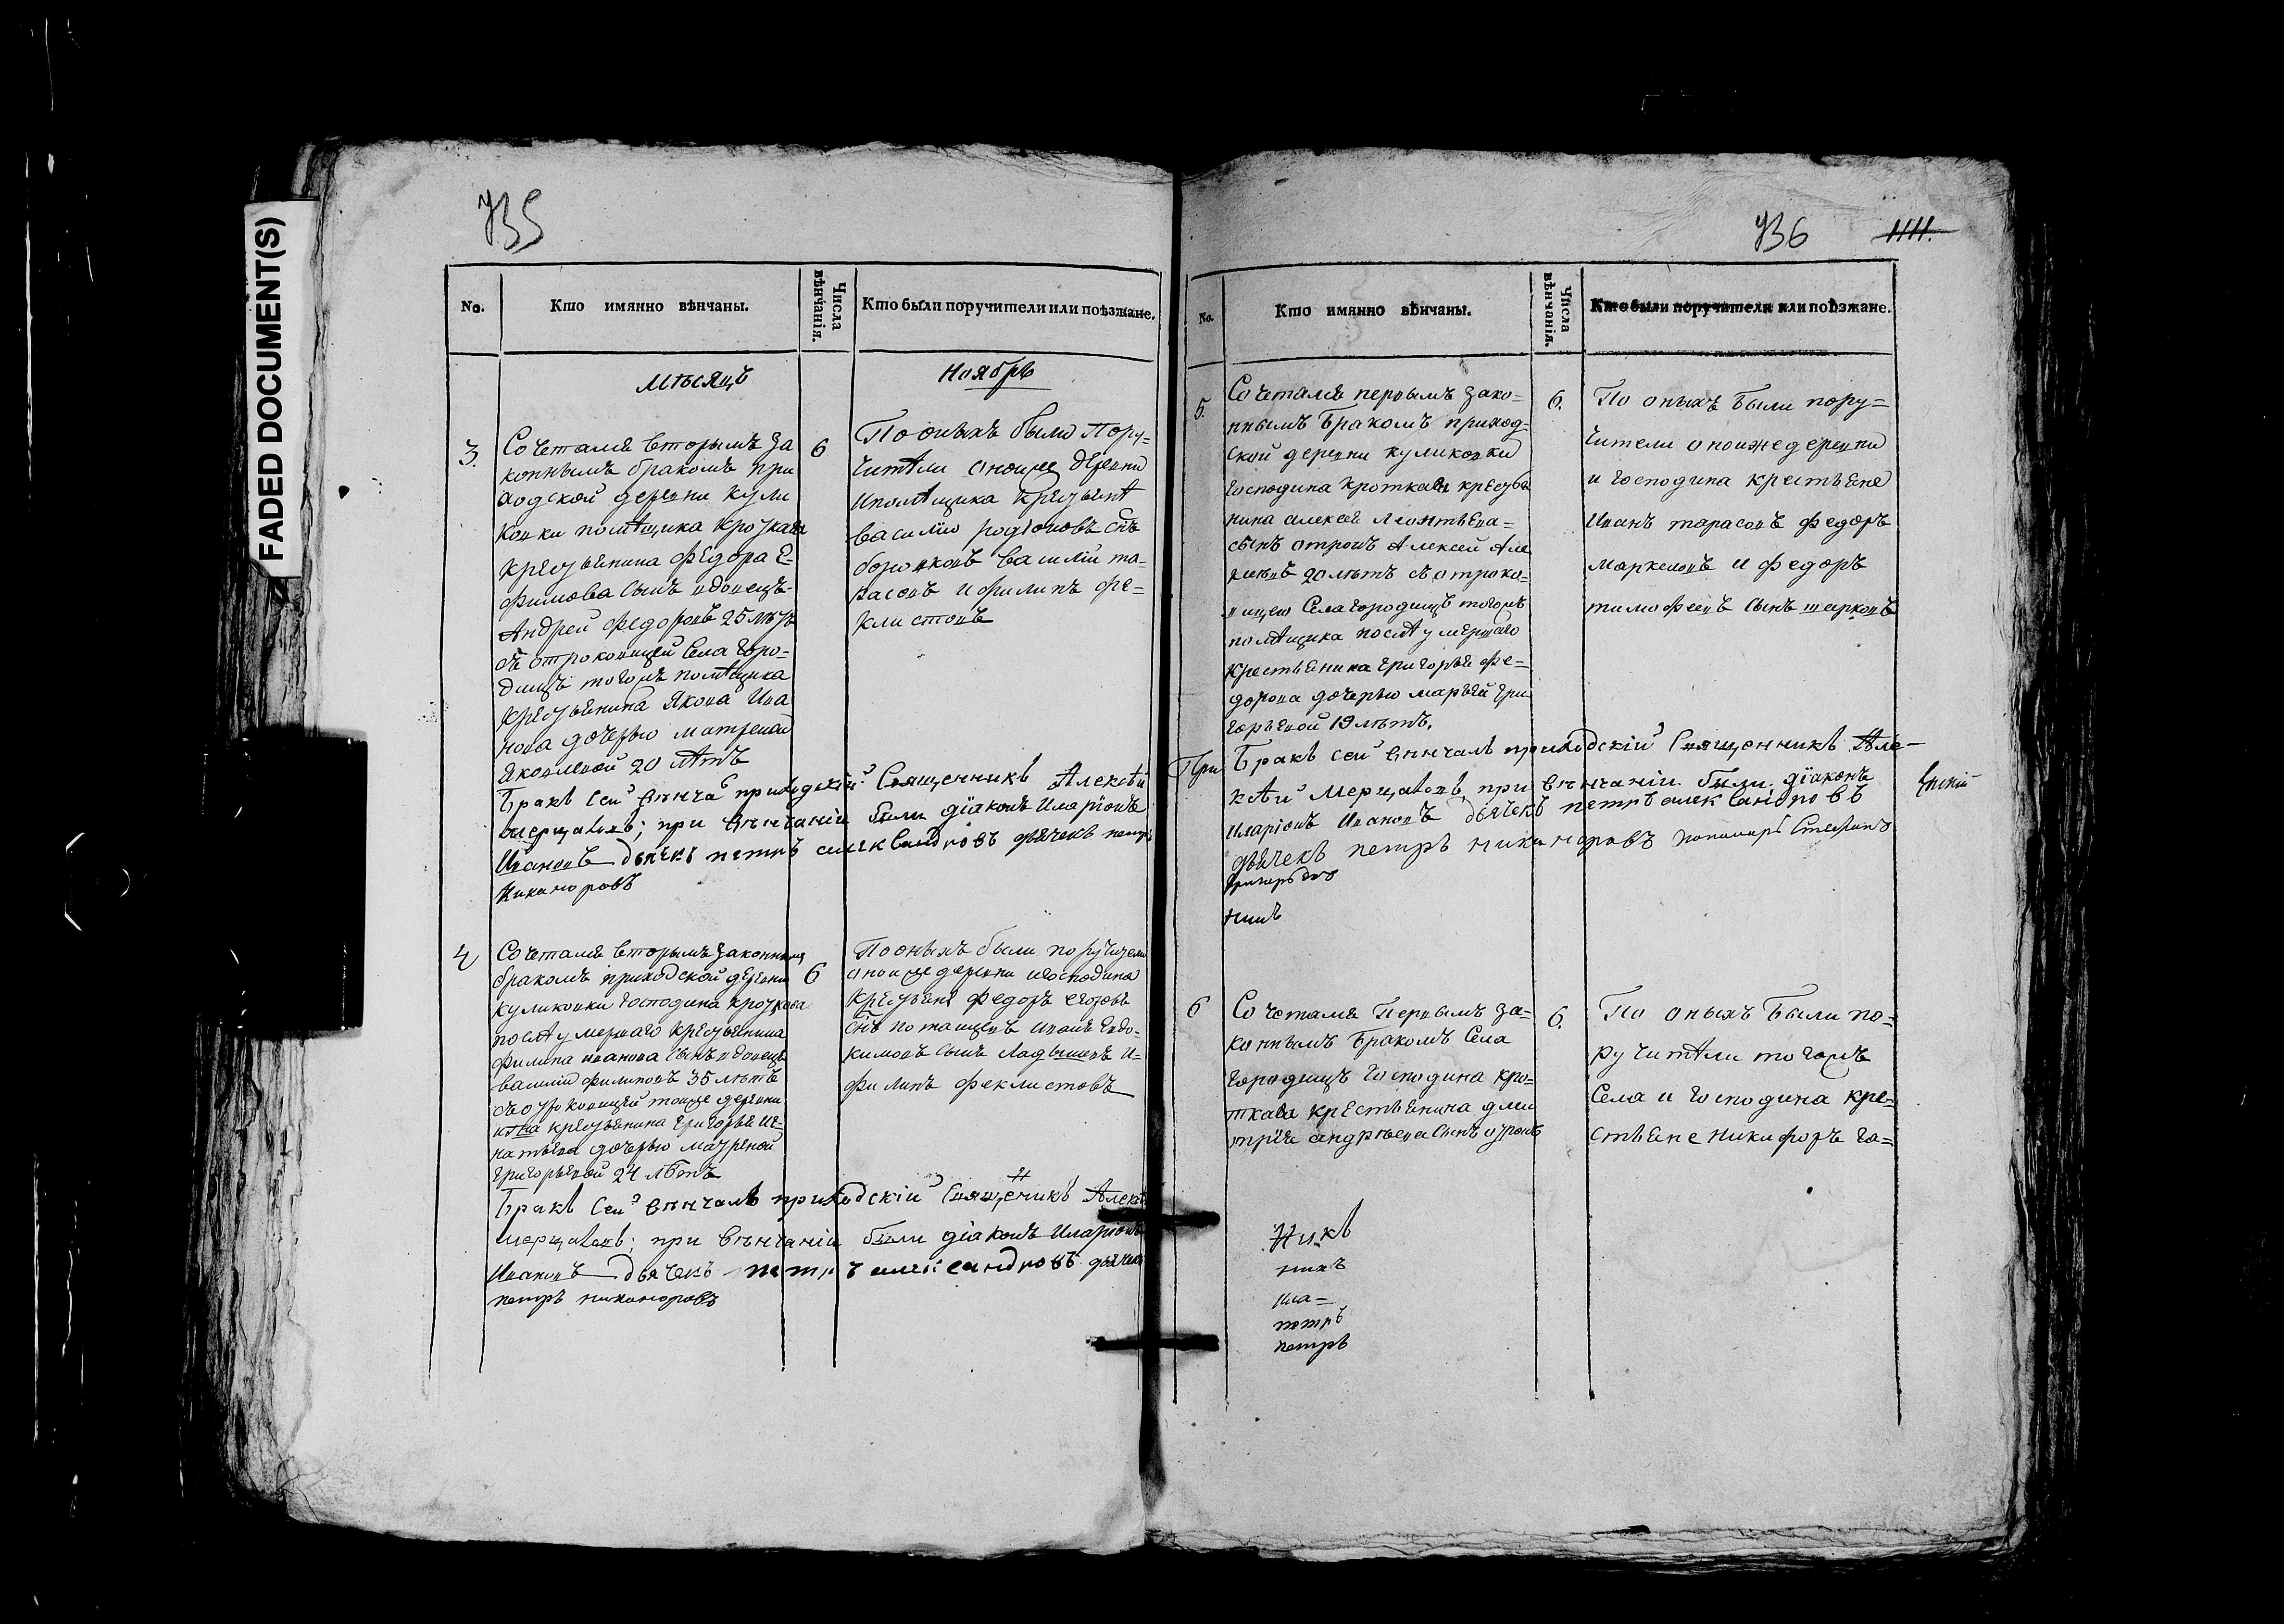 FADED DOCUMENT(S)
735
No.
Кто имянно вѣнчаны.
Числа вѣнчанія.
Кто были поручители или поѣзжане.
Мѣсяцъ Ноябрь
3.
Сочетался вторымъ за
коннымъ бракомъ при
ходской деревни Кули
ковки помѣщика Кроткава
крестьянина Федора Е=
фимова сынъ вдовецъ
Андрей Федоровъ 25 лѣтъ
съ отроковицей села Горо=
дищъ тогожъ помѣщика
крестьянина Якова Ива
нова дочерью Матреной
Яковлевой 20 лѣтъ
6
По оныхъ были пору=
чители оноиже деревни
и помѣщика крестьянѣ
Василію Родіоновъ снъ
Василій та=
расовъ и Филипъ Фе=
клистовъ
Бракъ сей вѣнча приходскій священникъ Алексѣй
Мерцаловъ; при вѣнчаніи были діаконъ Иларіонъ
Ивановъ дьячекъ петръ александровъ дьячекъ петръ
Никаноровъ
4
Сочетался вторымъ законнымъ
бракомъ приходской деревни
Куликовки господина Кроткова
послѣ умершаго крестьянина
Филипа Иванова сынъ вдовецъ
Василій Филиповъ 35 лѣтъ
съ отроковицей тоиже деревни
крестьянина Григорья Иг=
натьева дочерью Мавреной
Григорьевой 24 лѣтъ
6
По оныхъ были поручители
оноиже деревни и господина
крестьяне Федоръ
снъ Потапцевъ Иванъ Евдо=
кимовъ сынъ Ладышевъ и=
Филипъ Феклистовъ
Бракъ сей вѣнчалъ приходскій священикъ Алексѣ
Мерцаловъ; при вѣнчаніи были діаконъ Иларіонъ
Ивановъ дьячекъ петръ александровъ дьячекъ
петръ никаноровъ
736
1111.
No.
Кто имянно вѣнчаны.
Числа вѣнчанія.
Кто были поручители или поѣзжане.
5.
Сочетался первымъ зако=
ннымъ бракомъ приход=
ской деревни Куликовки
господина Кроткава кресть
нина Алексея Леонтьева=
сынъ отрокъ Алексей Але
20 лѣтъ съ отроко=
вицею села Городищъ тогожъ
помѣщика послѣ умершаго
крестьянина Григорья Фе=
дорова дочерью Марьей Гри
горьевой 19 лѣтъ.
6.
По оныхъ были пору=
чители оноижедеревни
и господина крестьяне
Иванъ Тарасовъ Федоръ
Маркеловъ и Федоръ
Тимофеевъ сынъ Шарковъ
При
Бракъ сей вѣнчалъ приходскій священникъ Але—
ксѣй Мерцаловъ, при вѣнчаніи были діаконъ
Иларіонъ Ивановъ дьячекъ петръ александровъ
дьячекъ петръ никаноровъ пономарь Стефанъ
6
Сочетался первымъ за=
коннымъ бракомъ села
Городищъ господина Кро=
ткава крестьянина Дми
трія Андрѣева сынъ отрокъ
6.
По оныхъ были по=
ручители тогожъ
села и господина кре=
стьяне Никифоръ Га=
никъ
петръ
петръ